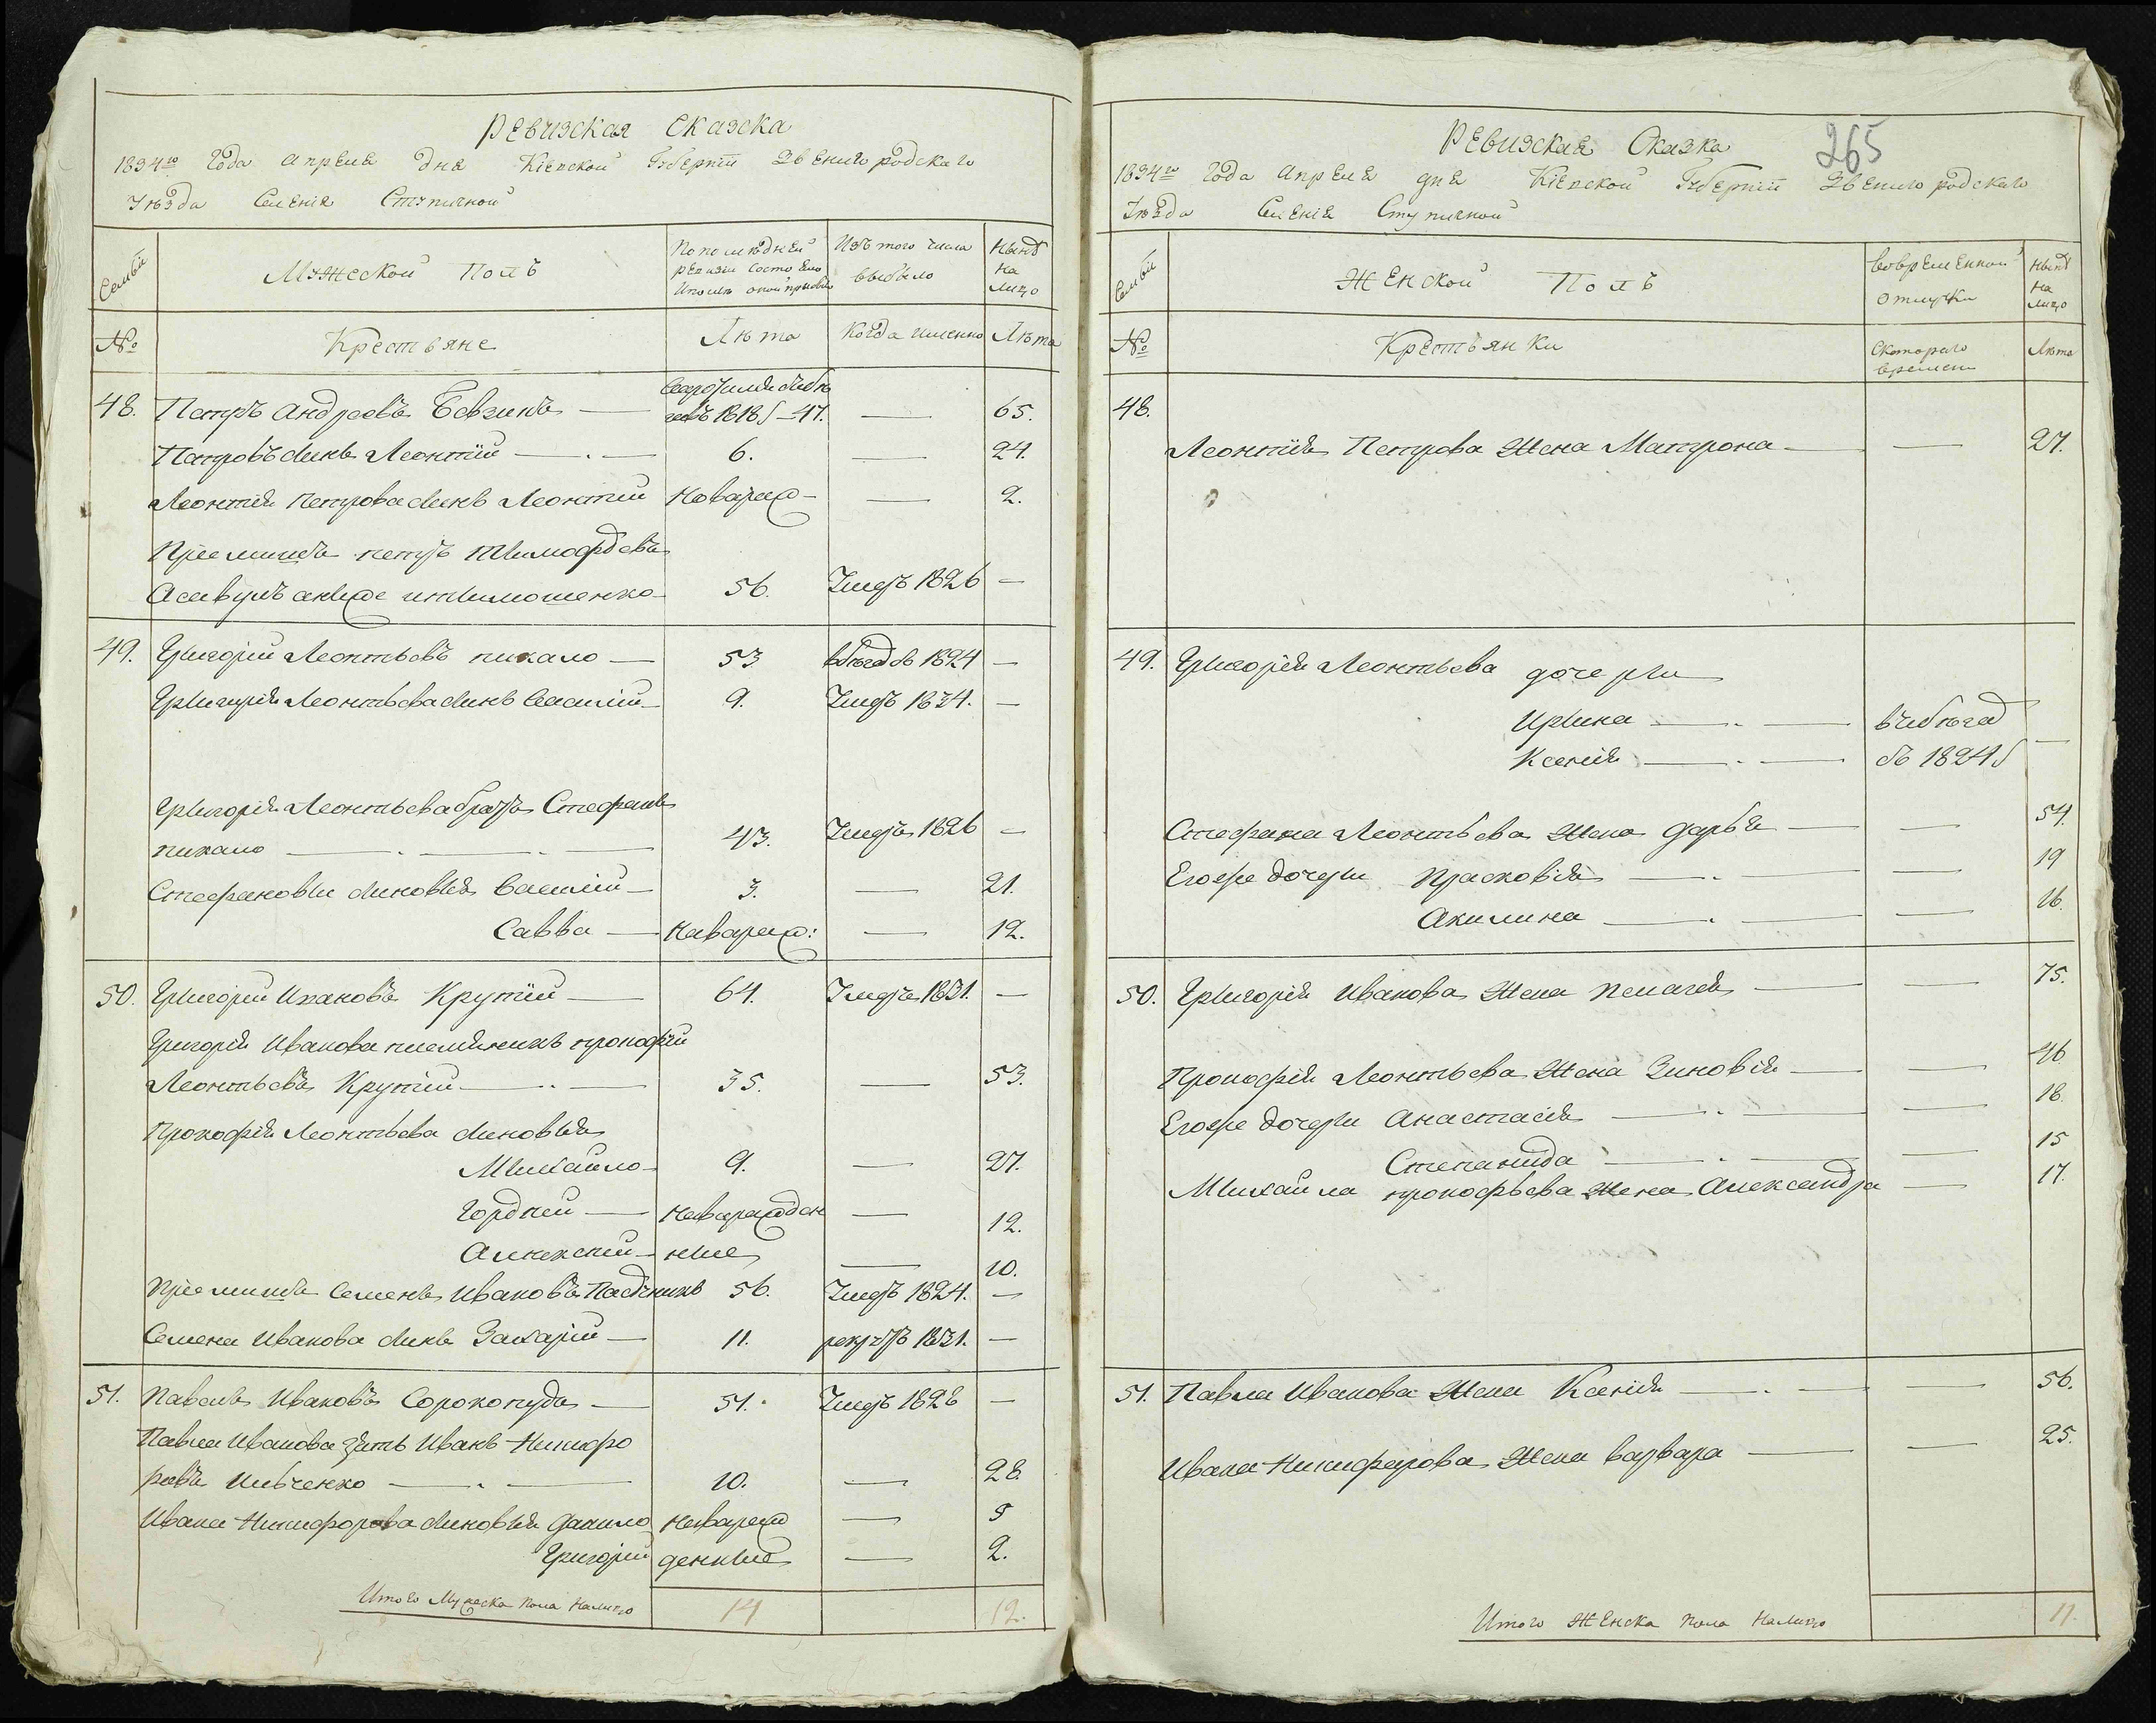 Ревизская Сказка
1834го Года апреля дня Кіевской Губерніи Звенигородскаго
Уезда Селенія Ступичной
Семьи
Мужеской Полъ
По последней ревизіи состояло и после оной прибыло
Изъ того числа выбыло
Ныне на лицо
№
Крестьяне
Лета
Когда именно
Лета
48. Петръ Андреевъ Бевзинъ — 1818 — 47. — 65.
Петровъ сынъ Леонтій — 6. — 24.
Леонтія Петрова сынъ Леонтій Новорожд — 2.
Пріемышъ петръ Тимофеевъ
онже и тимошенко 56. Умеръ 1826 —
49. Григорій Леонтьевъ пикало — 53 в бегахъ 1824 —
Григорія Леонтьева сынъ Василій — 9. Умеръ 1834. —
Григорія Леонтьева братъ Стефанъ
пикало — 43. Умеръ 1826 —
Стефановы сыновья Василій — 3. — 21.
Савва — Новорожд: — 12.
50. Григорій Ивановъ Крутій — 64. Умеръ 1831. —
Григорія Иванова племянникъ прокофій
Леонтьевъ Крутій — 35. — 53.
Прокофія Леонтьева сыновья
Михайло — 9. — 27.
Гордий — Новорожден — 12.
Алексій — ные — 10.
Пріемышъ Семенъ Ивановъ Пасечникъ 56. Умеръ 1824. —
Семена Иванова сынъ Захарій — 11. рекрутъ 1831. —
51. Павелъ Ивановъ Сорокопудъ — 51. Умеръ 1828 —
Павла Иванова зять Иванъ Никифо
ровъ Шевченко — 10. — 28.
Ивана Никифорова сыновья Данило Новорож — 5
Григорій денные — 2.
Итого Мужеска пола налицо 14 12.
265
Ревизская Сказка
1834го Года Апреля дня Кіевской Губерніи Звенигородскаго
Уезда Селенія Ступичной
Семьи
Женской Полъ
Во временной отлучки
Ныне на лицо
№
Крестьянки
С котораго времени
Лета
48.
Леонтія Петрова Жена Матрона — — 27.
49. Григорія Леонтьева дочери
Ирина — в побегах
Ксенія — съ 1824 —
Стефана Леонтьева Жена Дарья — — 54.
Егоже дочери Прасковія — — 19
Акилина — — 16.
50. Григорія Иванова Жена Пелагея — — 75.
Прокофія Леонтьева Жена Зиновія — — 46
Егоже дочери Анастасія — — 18.
Степанида — — 15
Михайла прокофьева Жена Александра — 17.
51. Павла Иванова Жена Ксенія — — 56.
Ивана Никифорова Жена Варвара — — 25.
Итого Женска пола Налицо 11.